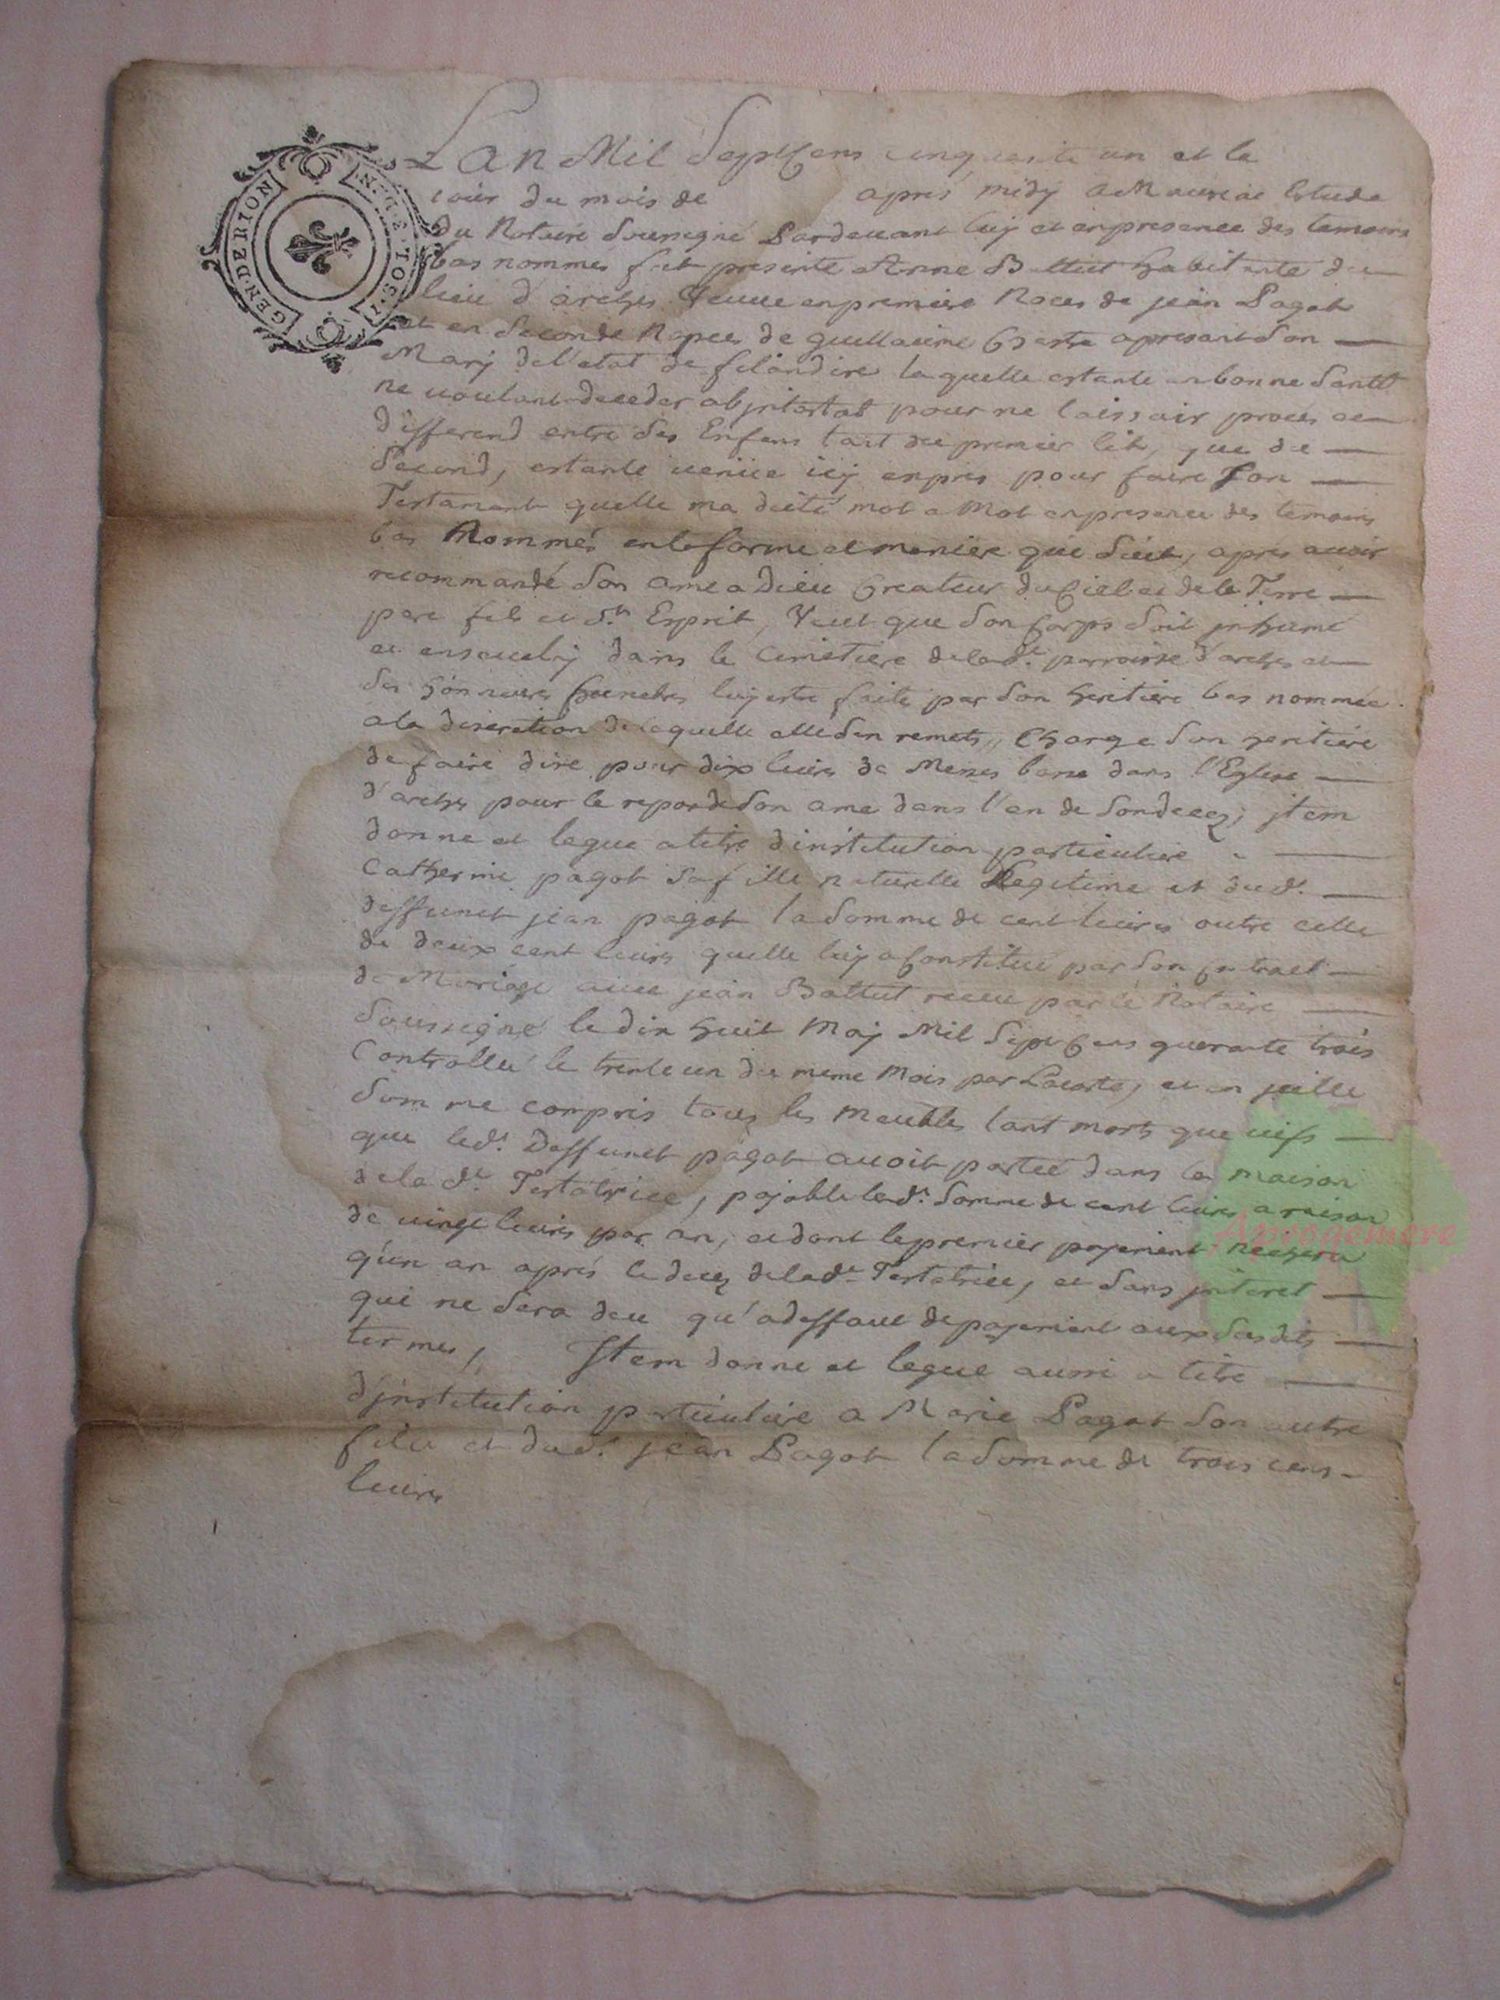 GEN. DE RION
Lan Mil Sept Cens cinquante un et le
jour du mois de après midy a Mauriac Estude
du Notaire Soussigné Pardevant luy et enpresence des temoins
bas nommes fut presente Anne Battut habitante du
lieu d'arches Veuve enpremiere Noces de jean Pagot
et en Seconde Nopces de guillaume apresant Son
Mary de l'etat de filandire laquelle estante enbonne Santé
ne voulant deceder abjntestat pour ne laissair proces ae
differend entre Ses Enfens tant du premier lit, que du
Second, estante venue icy expres pour faire Son
Testament quelle ma dicté mot a Mot enpresence des temoins
bas Nommés enla forme et maniere qui Suit, apres avoir
recommandé Son ame a Dieu Createur du Ciel et de la Terre
pere fils et St. Esprit, Veut que Son Corps Soit jnhumé
et ensevely dans le Cimetiere de lad. parroisse d'arches et
Ses honneurs funebres luy estre faits par Son heritiere bas nommée
ala discretion de laquelle elle Sen remets, Charge Son heritiere
de faire dire pour dix livres de Messes basse dans l'Eglise
d'arches pour le repos de Son ame dans l'an de Son decez, jtem
donne et legue a titre d'institution particuliere
Catherine pagot Sa fille naturelle Legitime et dud.
deffunct jean pagot la Somme de cent livres outre celle
de deux cent livres quelle luy a Constitué par Son Contract
de Mariage avec jean Battut receu par le Notaire
Soussigné le dix huit May Mil Sept Cens quarante trois
Controllé le trente un du meme Mois par Lacoste, et en jcelle
Somme compris tous les Meubles tant morts que vifs
que led. Deffunct pagot avoit porté dans la maison
de la d. Testatrice, payable lad. Somme de cent livres a raison
de vingt livres par an, et dont le premier payement ne
qu'un an aprés le decez de lad. Testatrice, et Sans jnteret
qui ne Sera deu qu'a deffaut de payement aux Susdits
termes, Jtem donne et legue aussi a titre
d'jnstitution particuliere a Marie Pagot Son autre
fille et dud. jean Pagot la Somme de trois cens
livres
Aprogemere